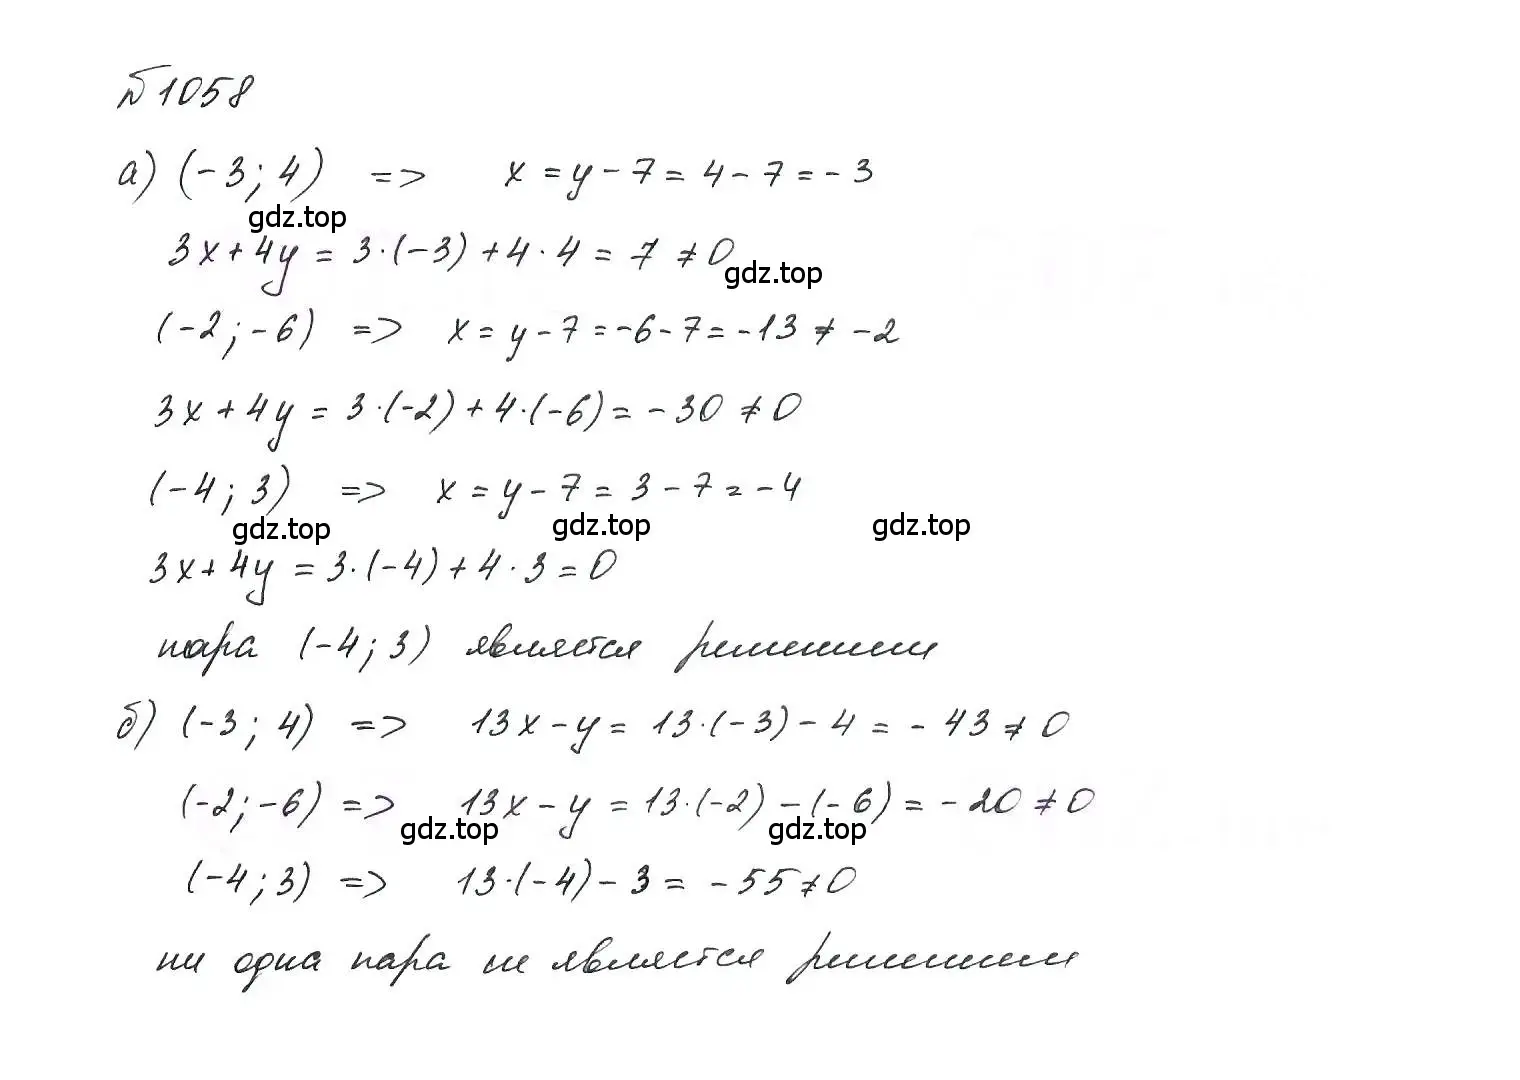 №1058
а) (-3; 4) => x = y - 7 = 4 - 7 = - 3
gdz.top
3x + 4y = 3·(-3) + 4·4 = 7 ≠ 0
gdz.top
(-2; -6) => x = y - 7 = -6 - 7 = -13 ≠ -2
3x + 4y = 3·(-2) + 4·(-6) = -30 ≠ 0
(-4; 3) => x = y - 7 = 3 - 7 = -4
gdz.top gdz.top gdz.top
3x + 4y = 3·(-4) + 4·3 = 0
пара (-4; 3) является решением
б) (-3; 4) => 13x - y = 13·(-3) - 4 = - 43 ≠ 0
(-2; -6) => 13x - y = 13·(-2) - (-6) = -20 ≠ 0
gdz.top gdz.top
(-4; 3) => 13·(-4) - 3 = -55 ≠ 0
ни одна пара не является решением